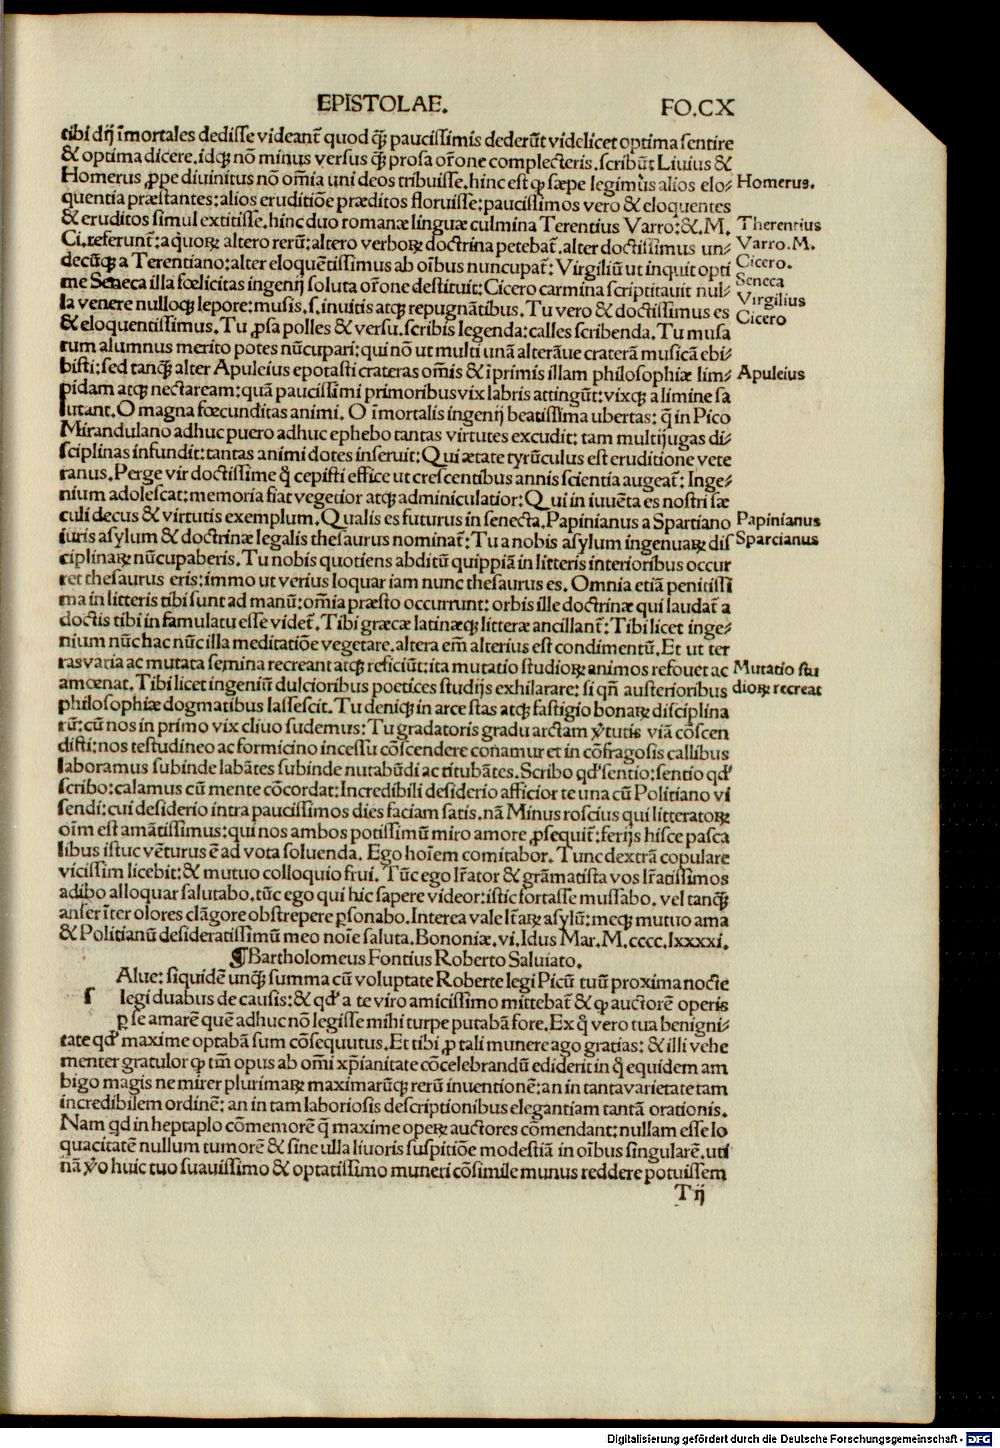 EPISTOLAE. FO.CX
tibi dij īmortales dedisse videant̄ quod q̄ꝫ paucissimis dederūt videlicet optima sentire
& optima dicere.idqꝫ nō minus versus q̄ꝫ prosa or̄one complecteris.scribūt Liuius &
Homerus ꝓpe diuinitus nō om̄ia uni deos tribuisse.hinc est ꝙ sæpe legimus alios elo⸗
Homerus.
quentia præstantes:alios eruditiōe præditos floruisse:paucissimos vero & eloquentes
& eruditos simul extitisse.hinc duo romanæ linguæ culmina Terentius Varro:&.M.
Therentius
Ci.referunt̄:a quoꝝ altero rerū:altero verboꝝ doctrina petebat̄.alter doctissimus un⸗
Varro.M.
decūqꝫ a Terentiano:alter eloquētissimus ab oībus nuncupat̄:Virgiliū ut inquit opti
Cicero.
me Seneca illa fœlicitas ingenij soluta or̄one destituit:Cicero carmina scriptitauit nul⸗
Seneca
la venere nulloqꝫ lepore:musis.s.inuitis atqꝫ repugnātibus.Tu vero & doctissimus es
Virgilius
& eloquentissimus.Tu ꝓsa polles & versu.scribis legenda:calles scribenda.Tu musa
Cicero
rum alumnus merito potes nūcupari:qui nō ut multi unā alterāue craterā musicā ebi⸗
bisti:sed tanq̄ꝫ alter Apuleius epotasti crateras om̄is & īprimis illam philosophiæ lim⸗
Apuleius
pidam atqꝫ nectaream:quā paucissimi primoribus vix labris attingūt:vixqꝫ a limine sa
lutant.O magna fœcunditas animi.O īmortalis ingenij beatissima ubertas:q̄ in Pico
Mirandulano adhuc puero adhuc ephebo tantas virtutes excudit:tam multijugas di⸗
sciplinas infundit:tantas animi dotes inseruit:Qui ætate tyrūculus est eruditione vete
ranus.Perge vir doctissime q̊ cepisti effice ut crescentibus annis scientia augeat̄:Inge⸗
nium adolescat:memoria fiat vegetior atqꝫ adminiculatior:Qui in iuuēta es nostri sæ
culi decus & virtutis exemplum.Qualis es futurus in senecta.Papinianus a Spartiano
Papinianus
iuris asylum & doctrinæ legalis thesaurus nominat̄:Tu a nobis asylum ingenuaꝝ dis
Sparcianus
ciplinaꝝ nūcupaberis.Tu nobis quotiens abditū quippiā in litteris interioribus occur
ret thesaurus eris:immo ut verius loquar iam nunc thesaurus es.Omnia etiā penitissi
ma in litteris tibi sunt ad manū:om̄ia præsto occurrunt:orbis ille doctrinæ qui laudat̄ a
doctis tibi in famulatu esse videt̄.Tibi græcæ latinæqꝫ litteræ ancillant̄:Tibi licet inge⸗
nium nūc hac nūc illa meditatiōe vegetare.altera em̄ alterius est condimentū.Et ut ter
ras varia ac mutata semina recreant atqꝫ reficiūt:ita mutatio studioꝝ animos refouet ac
Mutatio stu
amœnat.Tibi licet ingeniū dulcioribus poetices studijs exhilarare:si qn̄ austerioribus
dioꝝ recreat
philosophiæ dogmatibus lassescit.Tu deniqꝫ in arce stas atqꝫ fastigio bonaꝝ disciplina
rū:cū nos in primo vix cliuo sudemus:Tu gradatoris gradu arctam v̓tutis viā cōscen
disti:nos testudineo ac formicino incessu cōscendere conamur et in cōfragosis callibus
laboramus subinde labātes subinde nutabūdi ac titubātes.Scribo qd̓ sentio:sentio qd̓
scribo:calamus cū mente cōcordat:Incredibili desiderio afficior te una cū Politiano vi
sendi:cui desiderio intra paucissimos dies faciam satis.nā Minus roscius qui litteratoꝝ
oīm est amātissimus:qui nos ambos potissimū miro amore ꝓsequit̄:ferijs hisce pasca
libus istuc vēturus ē ad vota soluenda.Ego hoīem comitabor.Tunc dextrā copulare
vicissim licebit:& mutuo colloquio frui.Tūc ego lr̄ator & grāmatista vos lr̄atissimos
adibo alloquar salutabo.tūc ego qui hic sapere videor:istic fortasse mussabo.vel tanq̄ꝫ
anser īter olores clāgore obstrepere ꝑsonabo.Interea vale lr̄aꝝ asylū:meqꝫ mutuo ama
& Politianū desideratissimū meo noīe saluta.Bononiæ.vi.Idus Mar.M.cccc.lxxxxi.
¶Bartholomeus Fontius Roberto Saluiato.
s Alue:siquidē unq̄ꝫ summa cū voluptate Roberte legi Picū tuū proxima nocte
legi duabus de causis:& qd̓ a te viro amicissimo mittebat̄ & ꝙ auctorē operis
ꝑ se amarē quē adhuc nō legisse mihi turpe putabā fore.Ex q̊ vero tua benigni⸗
tate qd̓ maxime optabā sum cōsequutus.Et tibi ꝓ tali munere ago gratias:& illi vehe
menter gratulor ꝙ tm̄ opus ab om̄i xp̄ianitate cōcelebrandū ediderit in q̊ equidem am
bigo magis ne mirer plurimaꝝ maximarūqꝫ rerū inuentionē:an in tanta varietate tam
incredibilem ordinē:an in tam laboriosis descriptionibus elegantiam tantā orationis.
Nam qd in heptaplo cōmemorē q̄ maxime operꝝ auctores cōmendant:nullam esse lo
quacitatē nullum tumorē & sine ulla liuoris suspitiōe modestiā in oībus singularē.uti
nā v̓o huic tuo suauissimo & optatissimo muneri cōsimile munus reddere potuissem
Tij
Digitalisierung gefördert durch die Deutsche Forschungsgemeinschaft - DFG